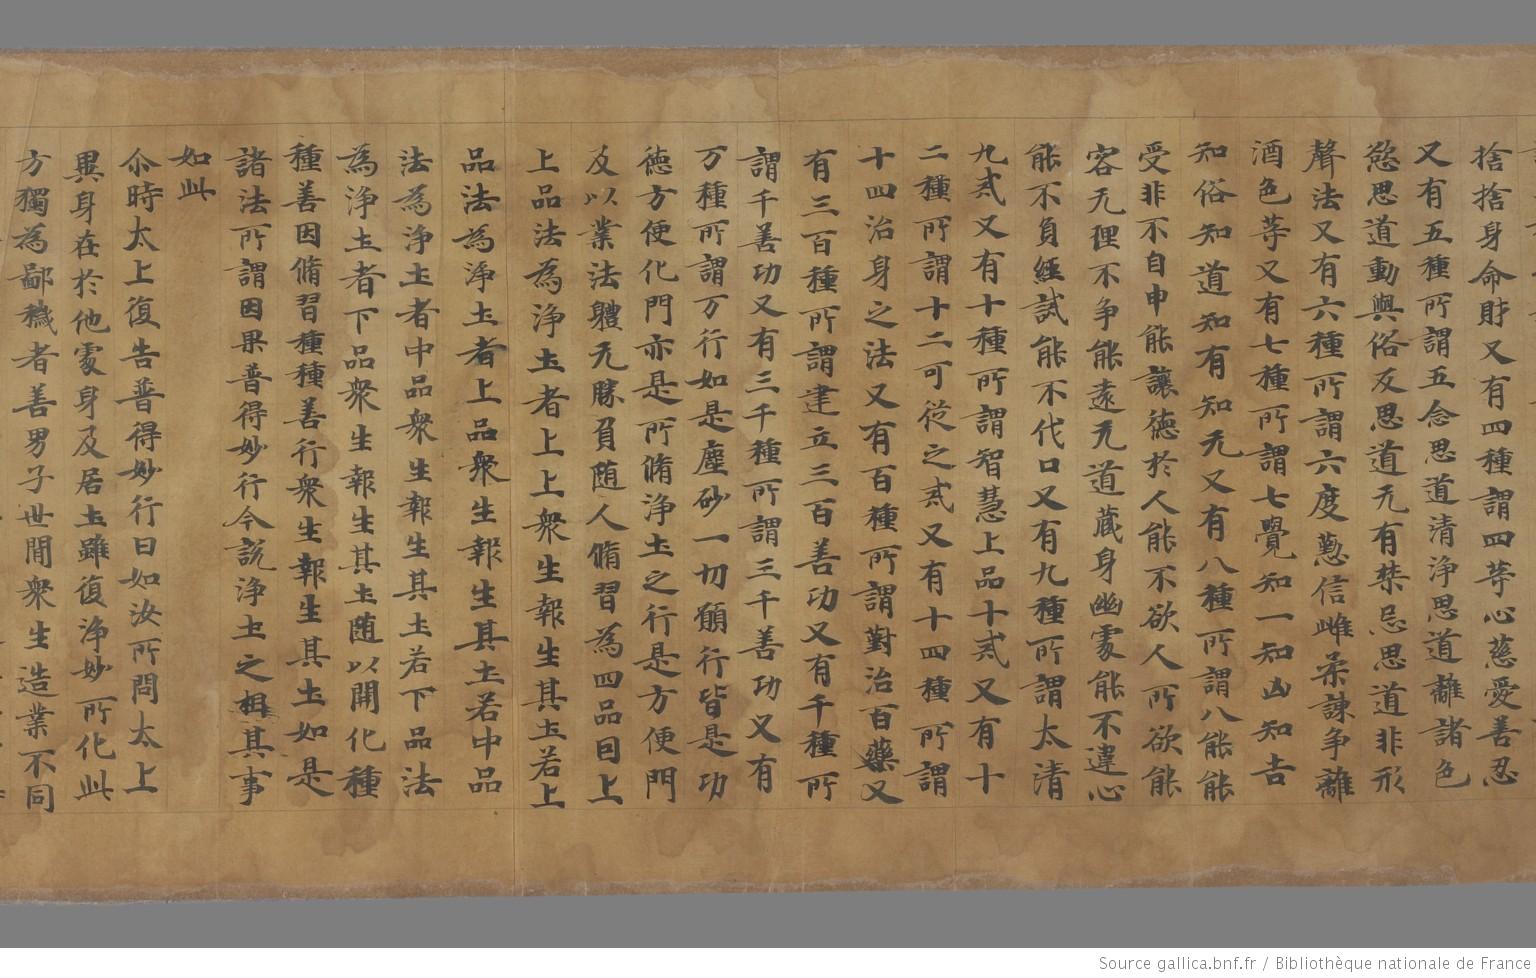 捨捨身命財又有四種謂四等心慈愛善忍
又有五種所謂五念思道清淨思道離諸色
慾思道動與俗反思道无有禁忌思道非形
聲法又有六種所謂六度懃信雌柔諫争離
酒色等又有七種所謂七覺知一知凶知吉
知俗知道知有知无又有八種所謂八能能
受非不自申能讓德於人能不欲人所欲能
容无理不争能遠无道蔵身幽處能不違心
能不負經試能不代口又有九種所謂太清
九貳又有十種所謂智慧上品十貳又有十
二種所謂十二可從之貳又有十四種所謂
十四治身之法又有百種所謂對治百藥又
有三百種所謂建立三百善功又有千種所
謂千善功又有三千種所謂三千善功又有
万種所謂万行如是塵砂一切願行皆是功
徳方便化門亦是所脩淨土之行是方便門
及以業法體无勝負随人脩習為四品曰上
上品法為淨土者上上衆生報生其土若上
品法為淨土者上品衆生報生其土若中品
法為淨土者中品衆生報生其土若下品法
為淨土者下品衆生報生其土随以開化種
種善因脩習種種善行衆生報生其土如是
諸法所謂因果普得妙行今説淨土之相其事
如此
尒時太上復告普得妙行曰如汝所問太上
異身在於他處身及居土雖復淨妙所化此
方獨為鄙穢者善男子世間衆生造業不同
Source gallica.bnf.fr / Bibliothèque nationale de France